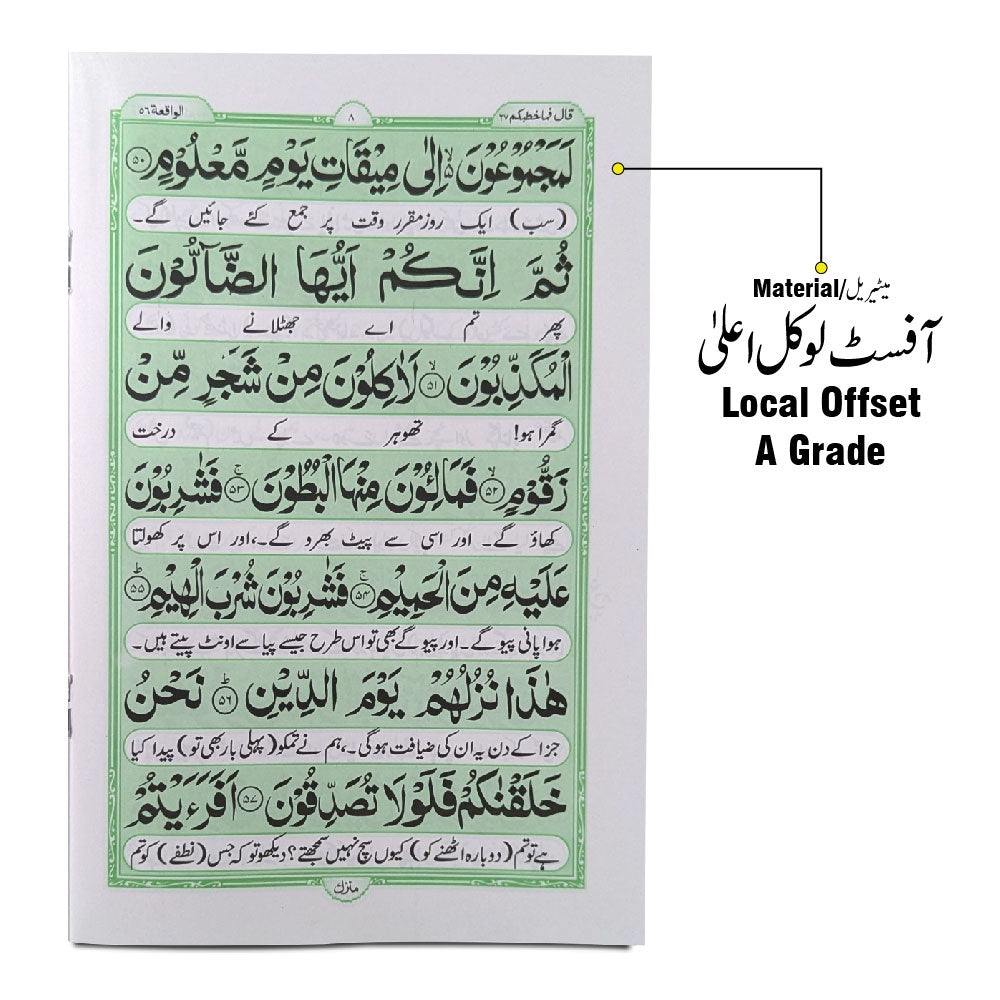 قال فما خطبکم ۲۷
۸
الواقعة ۵۶
لَمَجْمُوْعُوْنَ ۙ۬ اِلٰى مِيْقَاتِ يَوْمٍ مَّعْلُوْمٍ ۵۰
(سب) ایک روز مقرر وقت پر جمع کئے جائیں گے۔
ثُمَّ اِنَّكُمْ اَيُّهَا الضَّآلُّوْنَ
پھر تم اے جھٹلانے والے
الْمُكَذِّبُوْنَ ۙ۵۱ لَاٰكِلُوْنَ مِنْ شَجَرٍ مِّنْ
گمراہو! تھوہر کے درخت
زَقُّوْمٍ ۙ۵۲ فَمَالِـُٔوْنَ مِنْهَا الْبُطُوْنَ ۚ۵۳ فَشٰرِبُوْنَ
کھاؤ گے۔ اور اسی سے پیٹ بھرو گے۔، اور اس پر کھولتا
عَلَيْهِ مِنَ الْحَمِيْمِ ۚ۵۴ فَشٰرِبُوْنَ شُرْبَ الْهِيْمِ ؕ۵۵
ہوا پانی پیو گے۔ اور پیو گے بھی تو اس طرح جیسے پیاسے اونٹ پیتے ہیں۔
هٰذَا نُزُلُهُمْ يَوْمَ الدِّيْنِ ؕ۵۶ نَحْنُ
جزا کے دن یہ ان کی ضیافت ہوگی۔، ہم نے تمکو (پہلی بار بھی تو) پیدا کیا
خَلَقْنٰكُمْ فَلَوْلَا تُصَدِّقُوْنَ ۵۷ اَفَرَءَيْتُمْ
ہے تو تم (دوبارہ اٹھنے کو) کیوں سچ نہیں سمجھتے؟ دیکھو تو کہ جس (نطفے) کو تم
منزل
Material/میٹیریل
آفسٹ لوکل اعلیٰ
Local Offset
A Grade